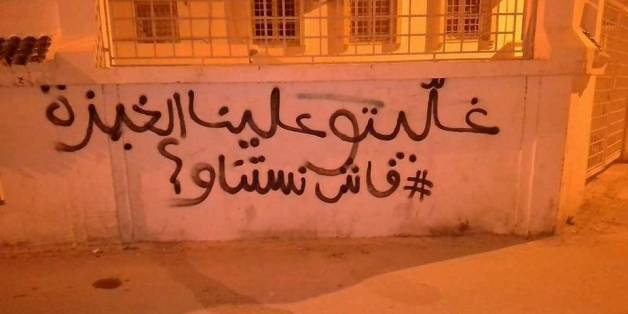 غلّيتو علينا الخبزة
#فاش نستناو؟